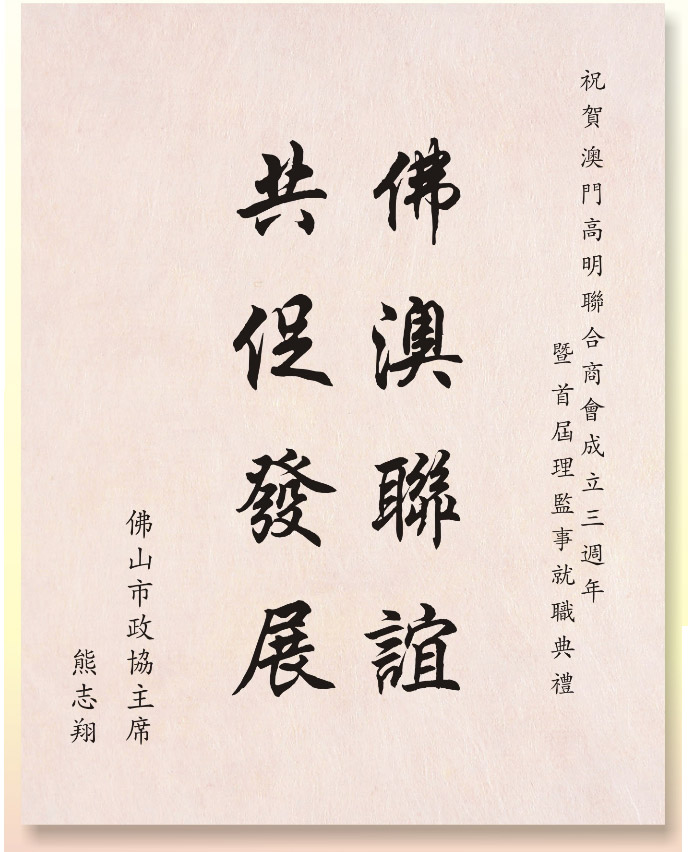 祝賀澳門高明聯合商會成立三週年
暨首屆理監事就職典禮
佛澳聯誼
共促發展
佛山市政協主席
熊志翔